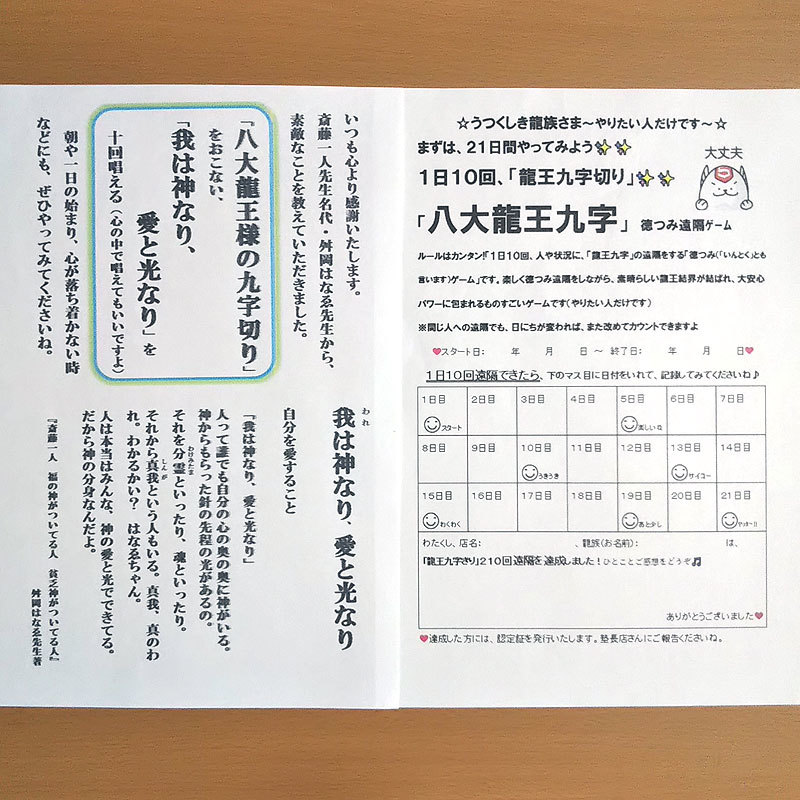 いつも心より感謝いたします。
斎藤一人先生名代・舛岡はなゑ先生から、
素敵なことを教えていただきました。
『八大龍王様の九字切り』
をおこない、
「我は神なり、
愛と光なり」を
十回唱える（心の中で唱えてもいいですよ）
朝や一日の始まり、心が落ち着かない時
などにも、ぜひやってみてくださいね。
我は神なり、愛と光なり
われ
自分を愛すること
「我は神なり、愛と光なり」
人って誰でも自分の心の奥の奥に神がいる。
神からもらった針の先程の光があるの。
それを分霊といったり、魂といったり。
わけみたま
それから真我という人もいる。真我、真のわ
しんが
れ。わかるかい？　はなゑちゃん。
人は本当はみんな、神の愛と光でできてる。
だから神の分身なんだよ。
『斎藤一人　福の神がついてる人　貧乏神がついてる人』
舛岡はなゑ先生著
☆うつくしき龍族さま～やりたい人だけです～☆
まずは、21日間やってみよう✨✨
1日10回、「龍王九字切り」✨✨
大丈夫
「八大龍王九字」 徳つみ遠隔ゲーム
ルールはカンタン！「1日10回、人や状況に、「龍王九字」の遠隔をする「徳つみ（「いんとく」とも
言います）ゲーム」です。楽しく徳つみ遠隔をしながら、素晴らしい龍王結界が結ばれ、大安心
パワーに包まれるものすごいゲームです（やりたい人だけです）
※同じ人への遠隔でも、日にちが変われば、また改めてカウントできますよ
♥スタート日：　年　月　日 ～ 終了日：　年　月　日♥
1日10回遠隔できたら、下のマス目に日付をいれて、記録してみてくださいね♪
1日目 2日目 3日目 4日目 5日目 6日目 7日目
スタート 楽しいね
8日目 9日目 10日目 11日目 12日目 13日目 14日目
うきうき サイコー
15日目 16日目 17日目 18日目 19日目 20日目 21日目
わくわく あと少し ヤッター!!
わたくし、店名：　、龍族（お名前）：　は、
「龍王九字きり」210回遠隔を達成しました！ひとことご感想をどうぞ♫
ありがとうございました♥
♥達成した方には、認定証を発行いたします。塾長店さんにご報告くださいね。